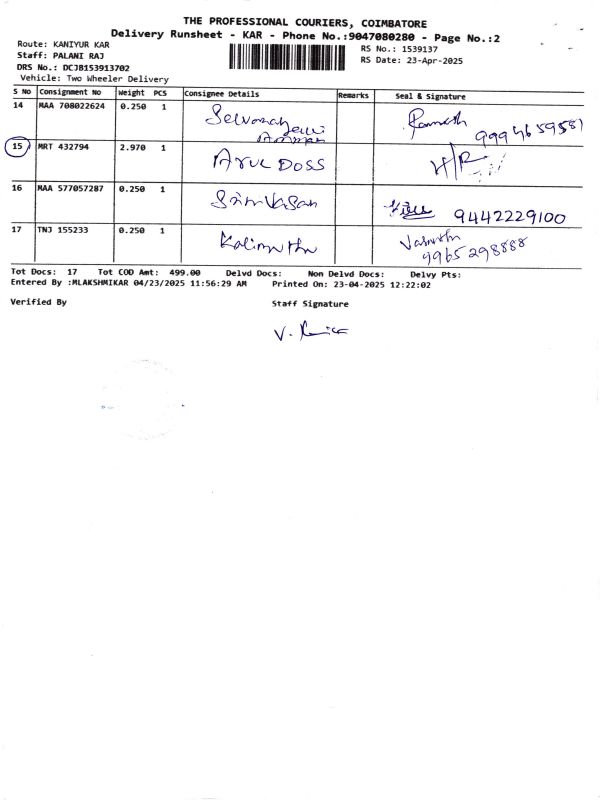 THE PROFESSIONAL COURIERS, COIMBATORE
Delivery Runsheet - KAR - Phone No.:9047080280 - Page No.:2
Route: KANIYUR KAR
Staff: PALANI RAJ
DRS No.: DCJB153913702
Vehicle: Two Wheeler Delivery
RS No.: 1539137
RS Date: 23-Apr-2025
S No Consignment No Weight PCS Consignee Details Remarks Seal & Signature
14 MAA 708022624 0.250 1
15 MRT 432794 2.970 1 Arul DOSS H/R
16 MAA 577057287 0.250 1 Srinivasan 9442229100
17 TNJ 155233 0.250 1 Kalimuthu
9965298888
Tot Docs: 17 Tot COD Amt: 499.00 Delvd Docs: Non Delvd Docs: Delvy Pts:
Entered By :MLAKSHMIKAR 04/23/2025 11:56:29 AM Printed On: 23-04-2025 12:22:02
Verified By Staff Signature